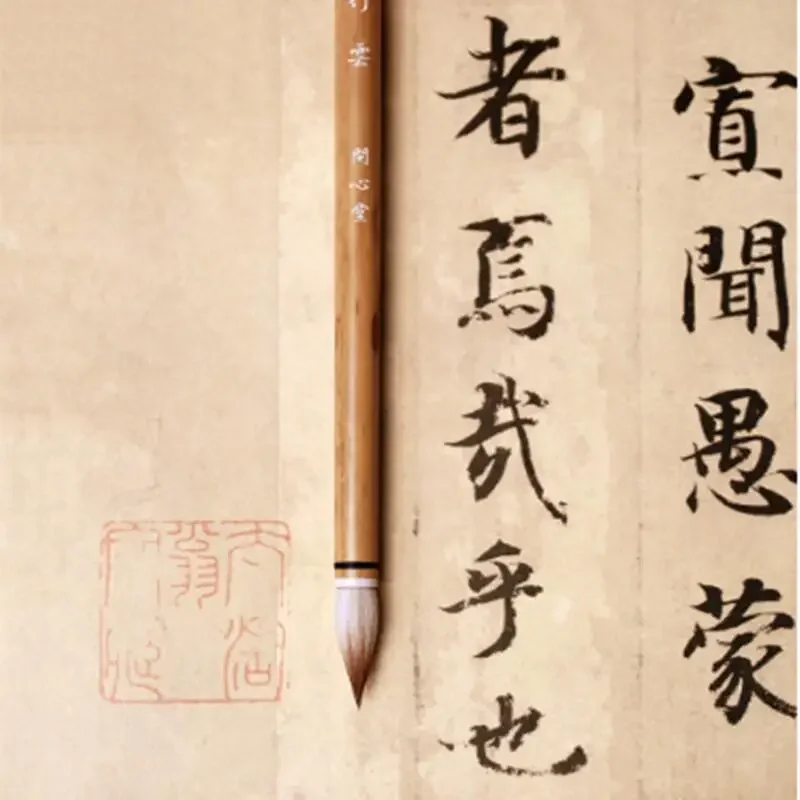 寡聞愚蒙
者焉哉乎也
行雲
問心堂